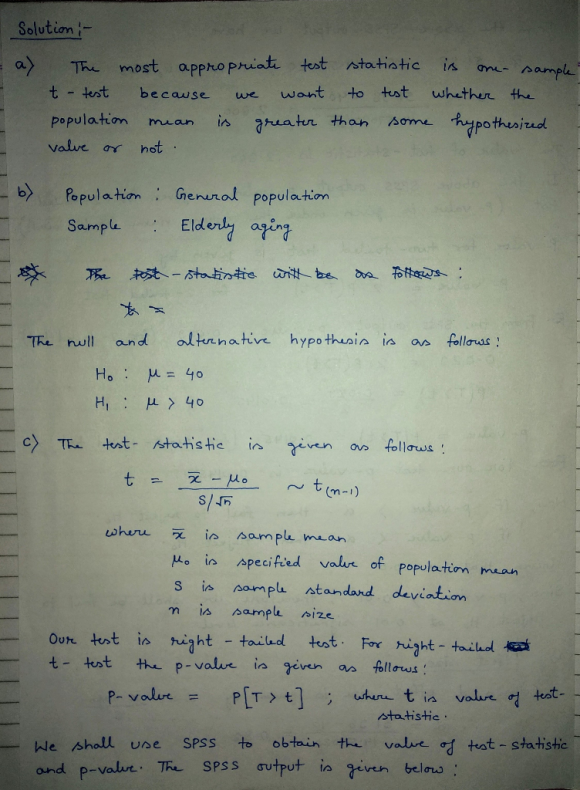 Solution :-
a) The most appropriate test statistic is one-sample
t-test because we want to test whether the
population mean is greater than some hypothesized
value or not.
b) Population : General population
Sample : Elderly aging
The test-statistic will be as follows :
t =
The null and alternative hypothesis is as follows :
H₀ : μ = 40
H₁ : μ > 40
c) The test-statistic is given as follows :
t = (x̄ - μ₀) / (S/√n) ~ t(n-1)
where x̄ is sample mean
μ₀ is specified value of population mean
S is sample standard deviation
n is sample size
Our test is right-tailed test. For right-tailed
t-test the p-value is given as follows :
P-value = P[T > t] ; where t is value of test-
statistic.
We shall use SPSS to obtain the value of test-statistic
and p-value. The SPSS output is given below :